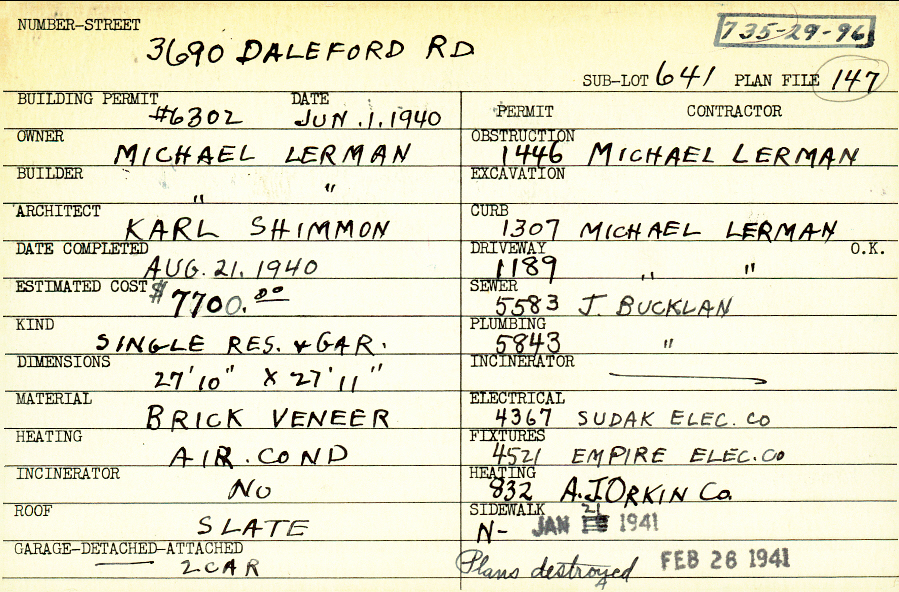 NUMBER-STREET
735-29-96
3690 DALEFORD RD
SUB-LOT 641 PLAN FILE 147
BUILDING PERMIT DATE
#6302 JUN.1.1940
OWNER
MICHAEL LERMAN
BUILDER
" "
ARCHITECT
KARL SHIMMON
DATE COMPLETED
AUG. 21, 1940
ESTIMATED COST $7700.00
KIND
SINGLE RES. & GAR.
DIMENSIONS
27'10" X 27'11"
MATERIAL
BRICK VENEER
HEATING
AIR. COND
INCINERATOR
NO
ROOF
SLATE
GARAGE-DETACHED-ATTACHED
2 CAR
PERMIT CONTRACTOR
OBSTRUCTION
1446 MICHAEL LERMAN
EXCAVATION
CURB
1307 MICHAEL LERMAN
DRIVEWAY O.K.
1189 " "
SEWER
5583 J. BUCKLAN
PLUMBING
5843 "
INCINERATOR
ELECTRICAL
4367 SUDAK ELEC. CO
FIXTURES
4521 EMPIRE ELEC. CO
HEATING
832 A.J. ORKIN CO.
SIDEWALK
N- JAN 21 1941
Plans destroyed FEB 26 1941